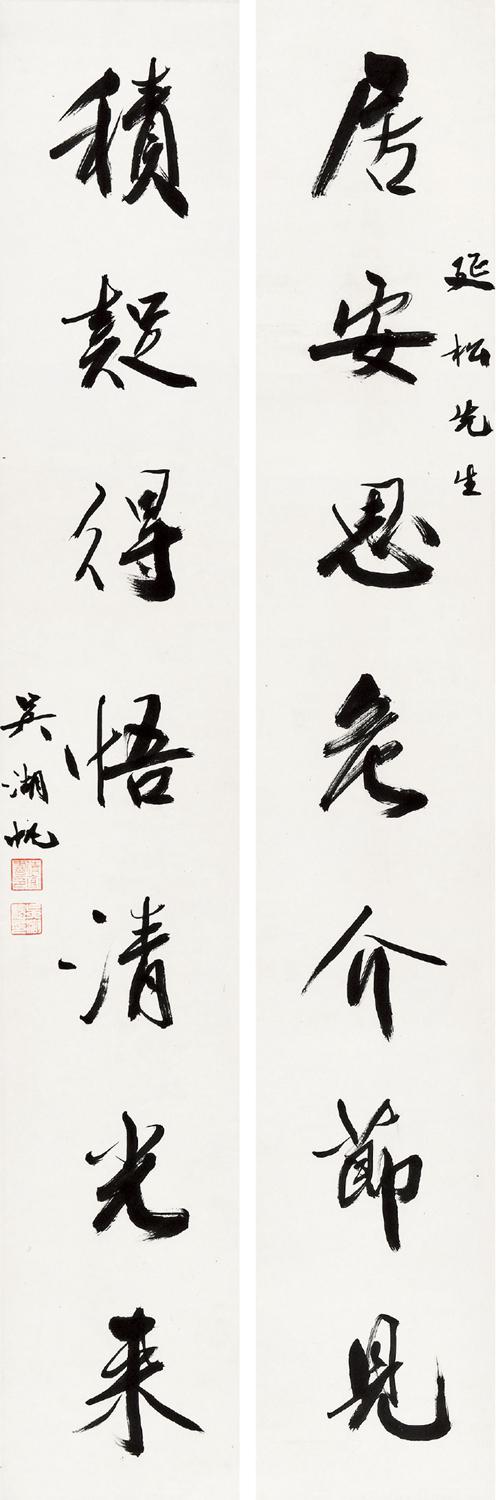 延松先生
居安思危介節見
積疑得悟清光来
吳湖帆